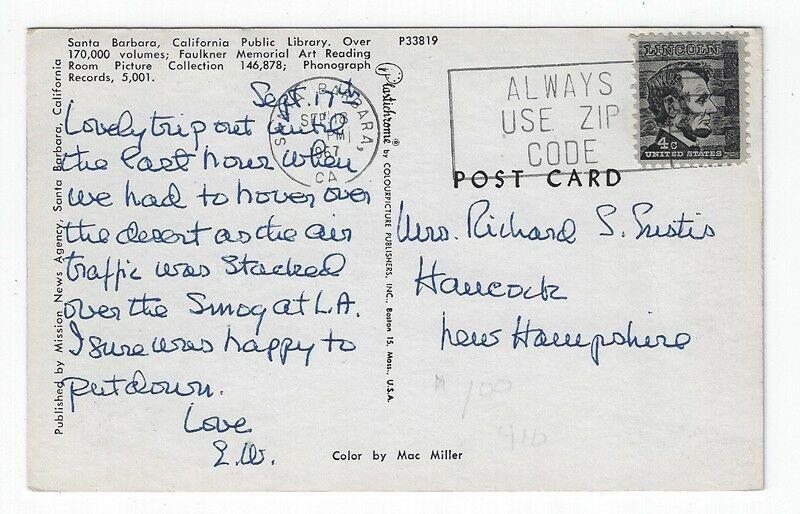 Santa Barbara, California Public Library. Over
170,000 volumes; Faulkner Memorial Art Reading
Room Picture Collection 146,878; Phonograph
Records, 5,001.
P33819
Sept. 17th
Lovely trip out until
the last hour when
we had to hover over
the desert as the air
traffic was stacked
over the smog at L.A.
I sure was happy to
put down.
Love
E.W.
Published by Mission News Agency, Santa Barbara, California
Plastichrome® by COLOURPICTURE PUBLISHERS, INC., Boston 15, Mass., U.S.A.
SANTA BARBARA,
SEP 18
PM
1967
CA
ALWAYS
USE ZIP
CODE
LINCOLN
4c
UNITED STATES
POST CARD
Mrs. Richard S. Eustis
Hancock
New Hampshire
Color by Mac Miller